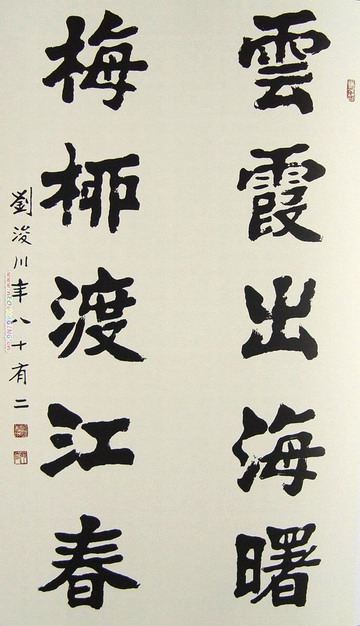 雲霞出海曙
梅柳渡江春
劉浚川年八十有二